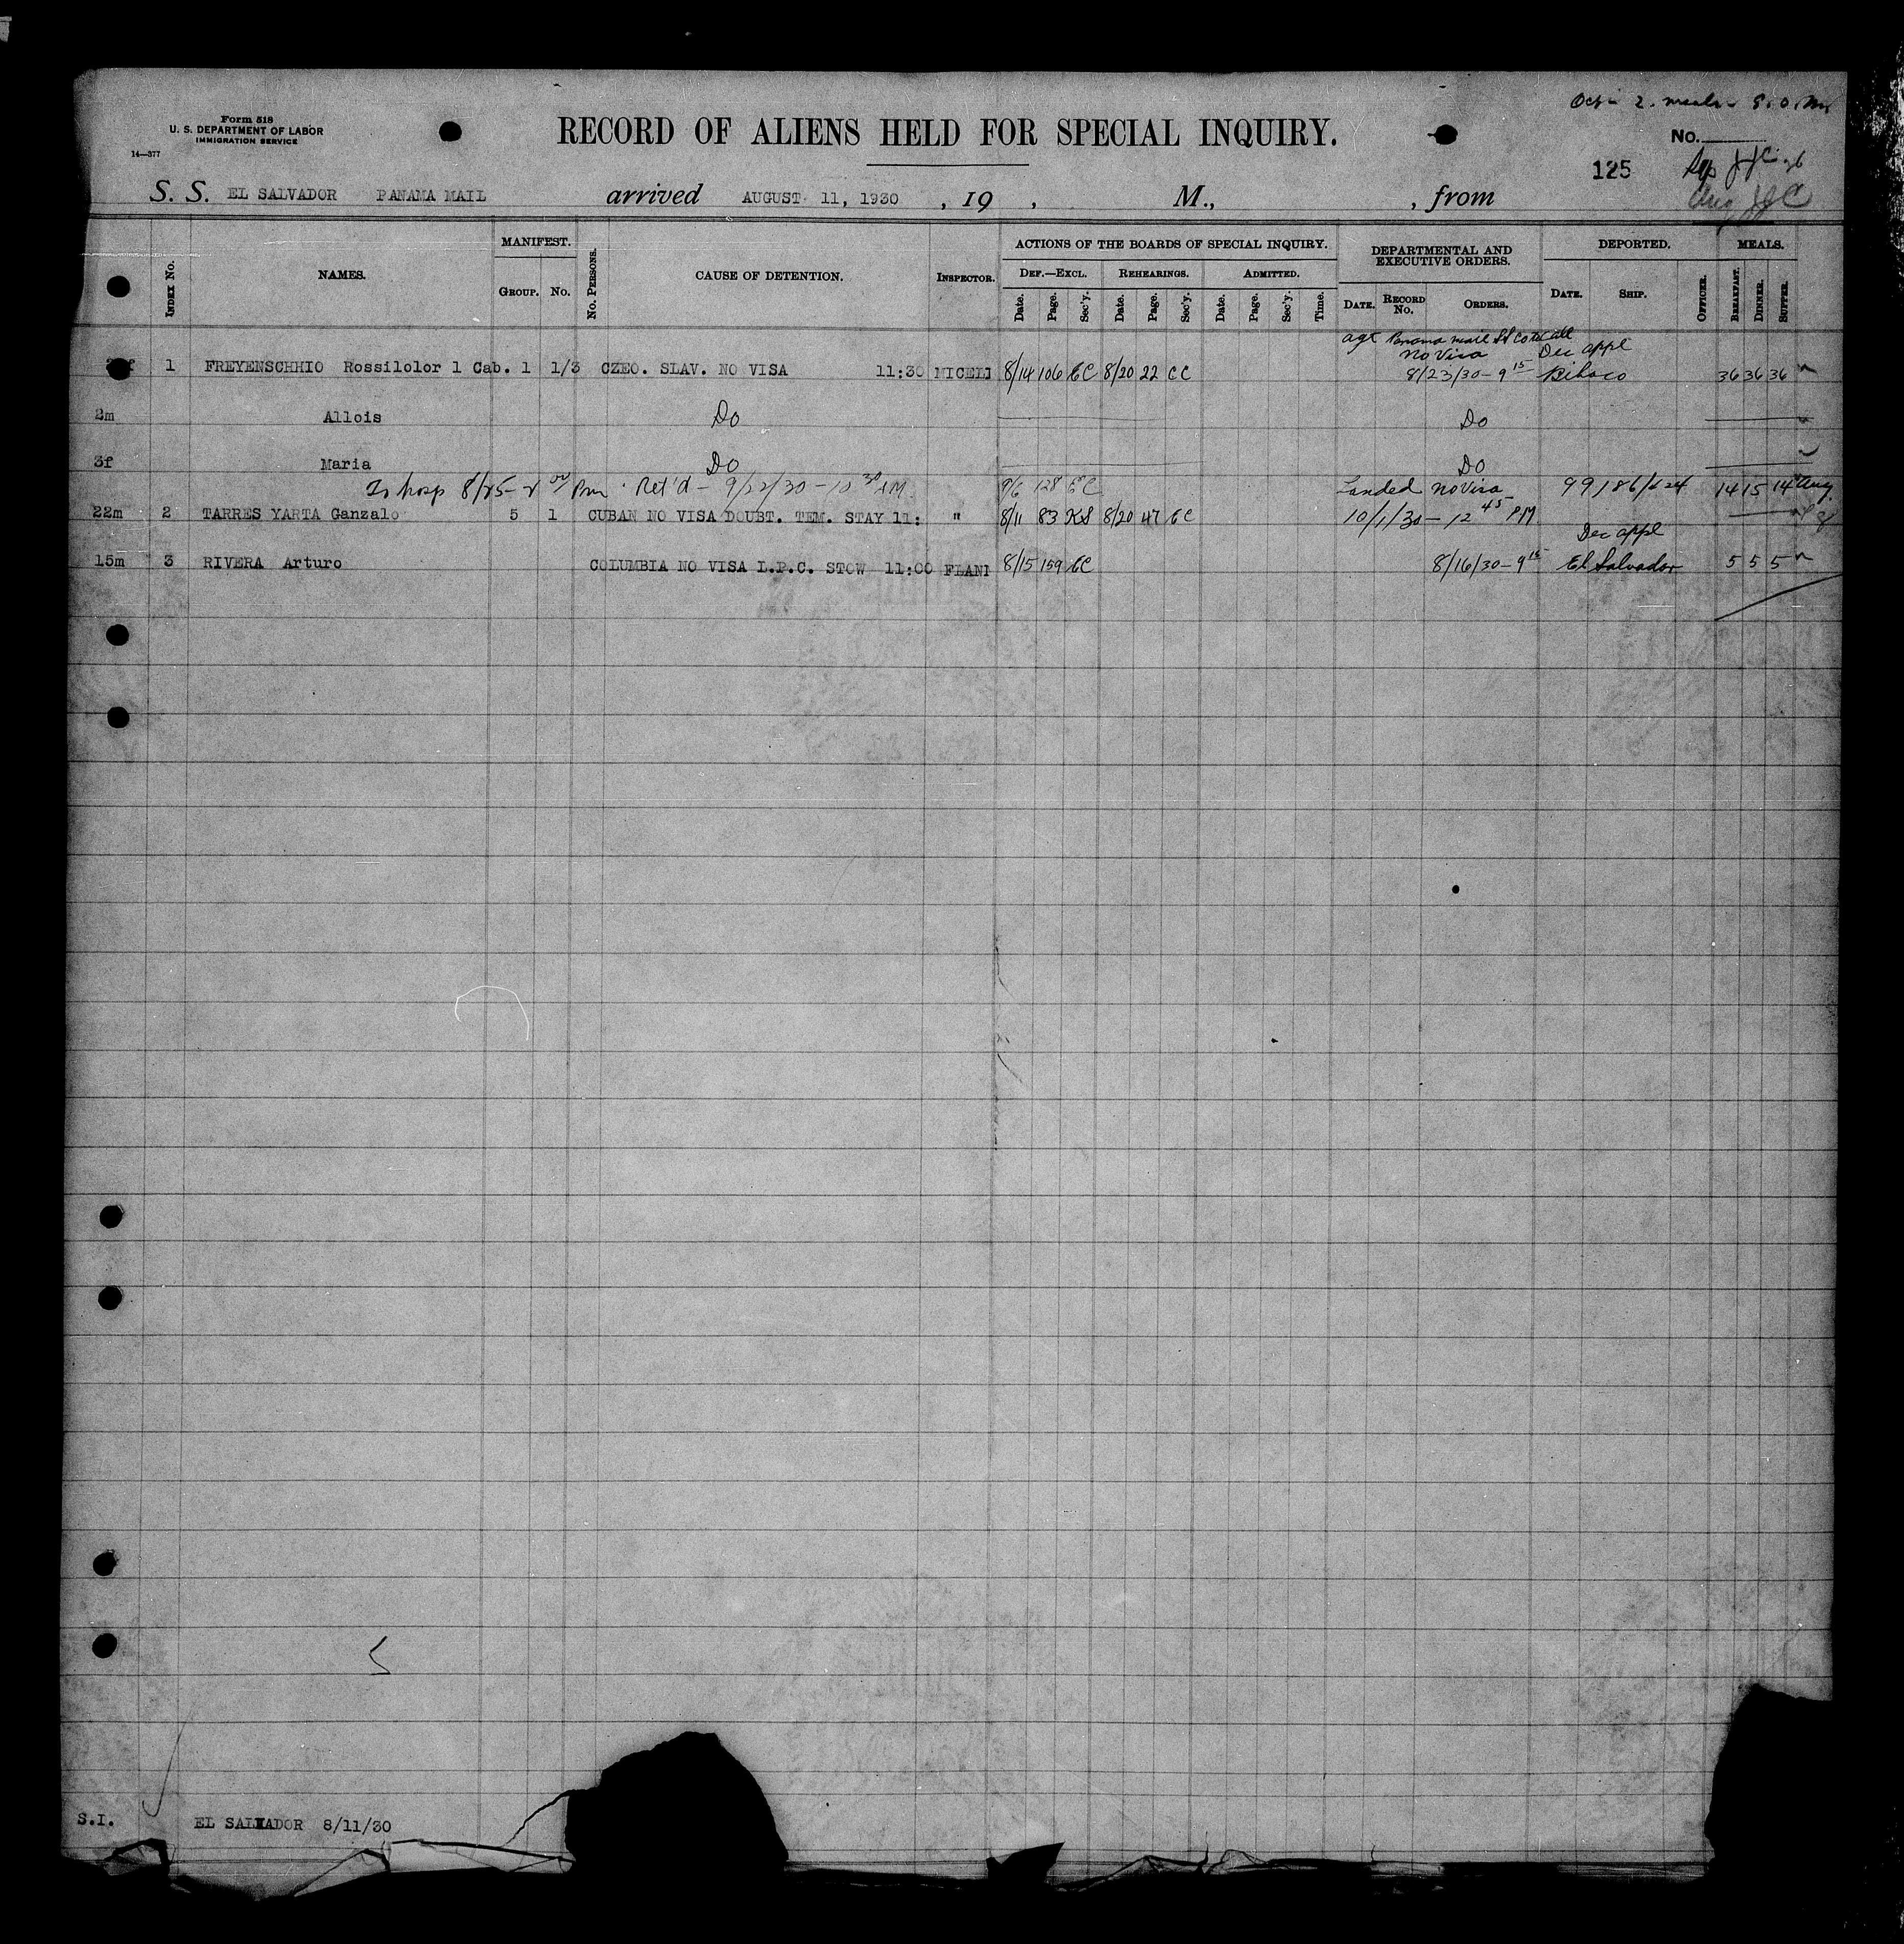 Oct - 2. meals -
Form 518
U. S. DEPARTMENT OF LABOR
IMMIGRATION SERVICE
14—377
RECORD OF ALIENS HELD FOR SPECIAL INQUIRY.
No.
125
S. S. EL SALVADOR PANAMA MAIL arrived AUGUST 11, 1930 , 19 , M., , from
INDEX No.
NAMES.
MANIFEST.
GROUP. No.
No. PERSONS.
CAUSE OF DETENTION.
INSPECTOR.
ACTIONS OF THE BOARDS OF SPECIAL INQUIRY.
DEF.—EXCL. REHEARINGS. ADMITTED.
Date. Page. Sec'y. Date. Page. Sec'y. Date. Page. Sec'y. Time.
DEPARTMENTAL AND EXECUTIVE ORDERS.
DATE. RECORD No. ORDERS.
DEPORTED.
DATE. SHIP. OFFICER.
MEALS.
BREAKFAST. DINNER. SUPPER.
agt Panama mail SS Co to call
No Visa Dec appl
1 FREYENSCHHIO Rossilolor 1 Cab. 1 1/3 CZEO. SLAV. NO VISA 11:30 MICELI 8/14 106 EC 8/20 22 CC 8/23/30 - 9 15 36 36 36
2m Allois Do Do
3f Maria Do Do
To hosp 8/25 - 2 00/ Pm . Ret'd - 9/22/30 - 10 30 AM. 9/6 128 EC Landed No Visa 99186/624 14 15 14 Aug
22m 2 TARRES YARTA Ganzalo 5 1 CUBAN NO VISA DOUBT. TEM. STAY 11: " 8/11 83 KS 8/20 47 EC 10/1/30 - 12 45 PM
Dec appl
15m 3 RIVERA Arturo COLUMBIA NO VISA L.P.C. STOW 11:00 FLANI 8/15 159 EC 8/16/30 - 9 15 El Salvador 5 5 5
S.I. EL SALVADOR 8/11/30